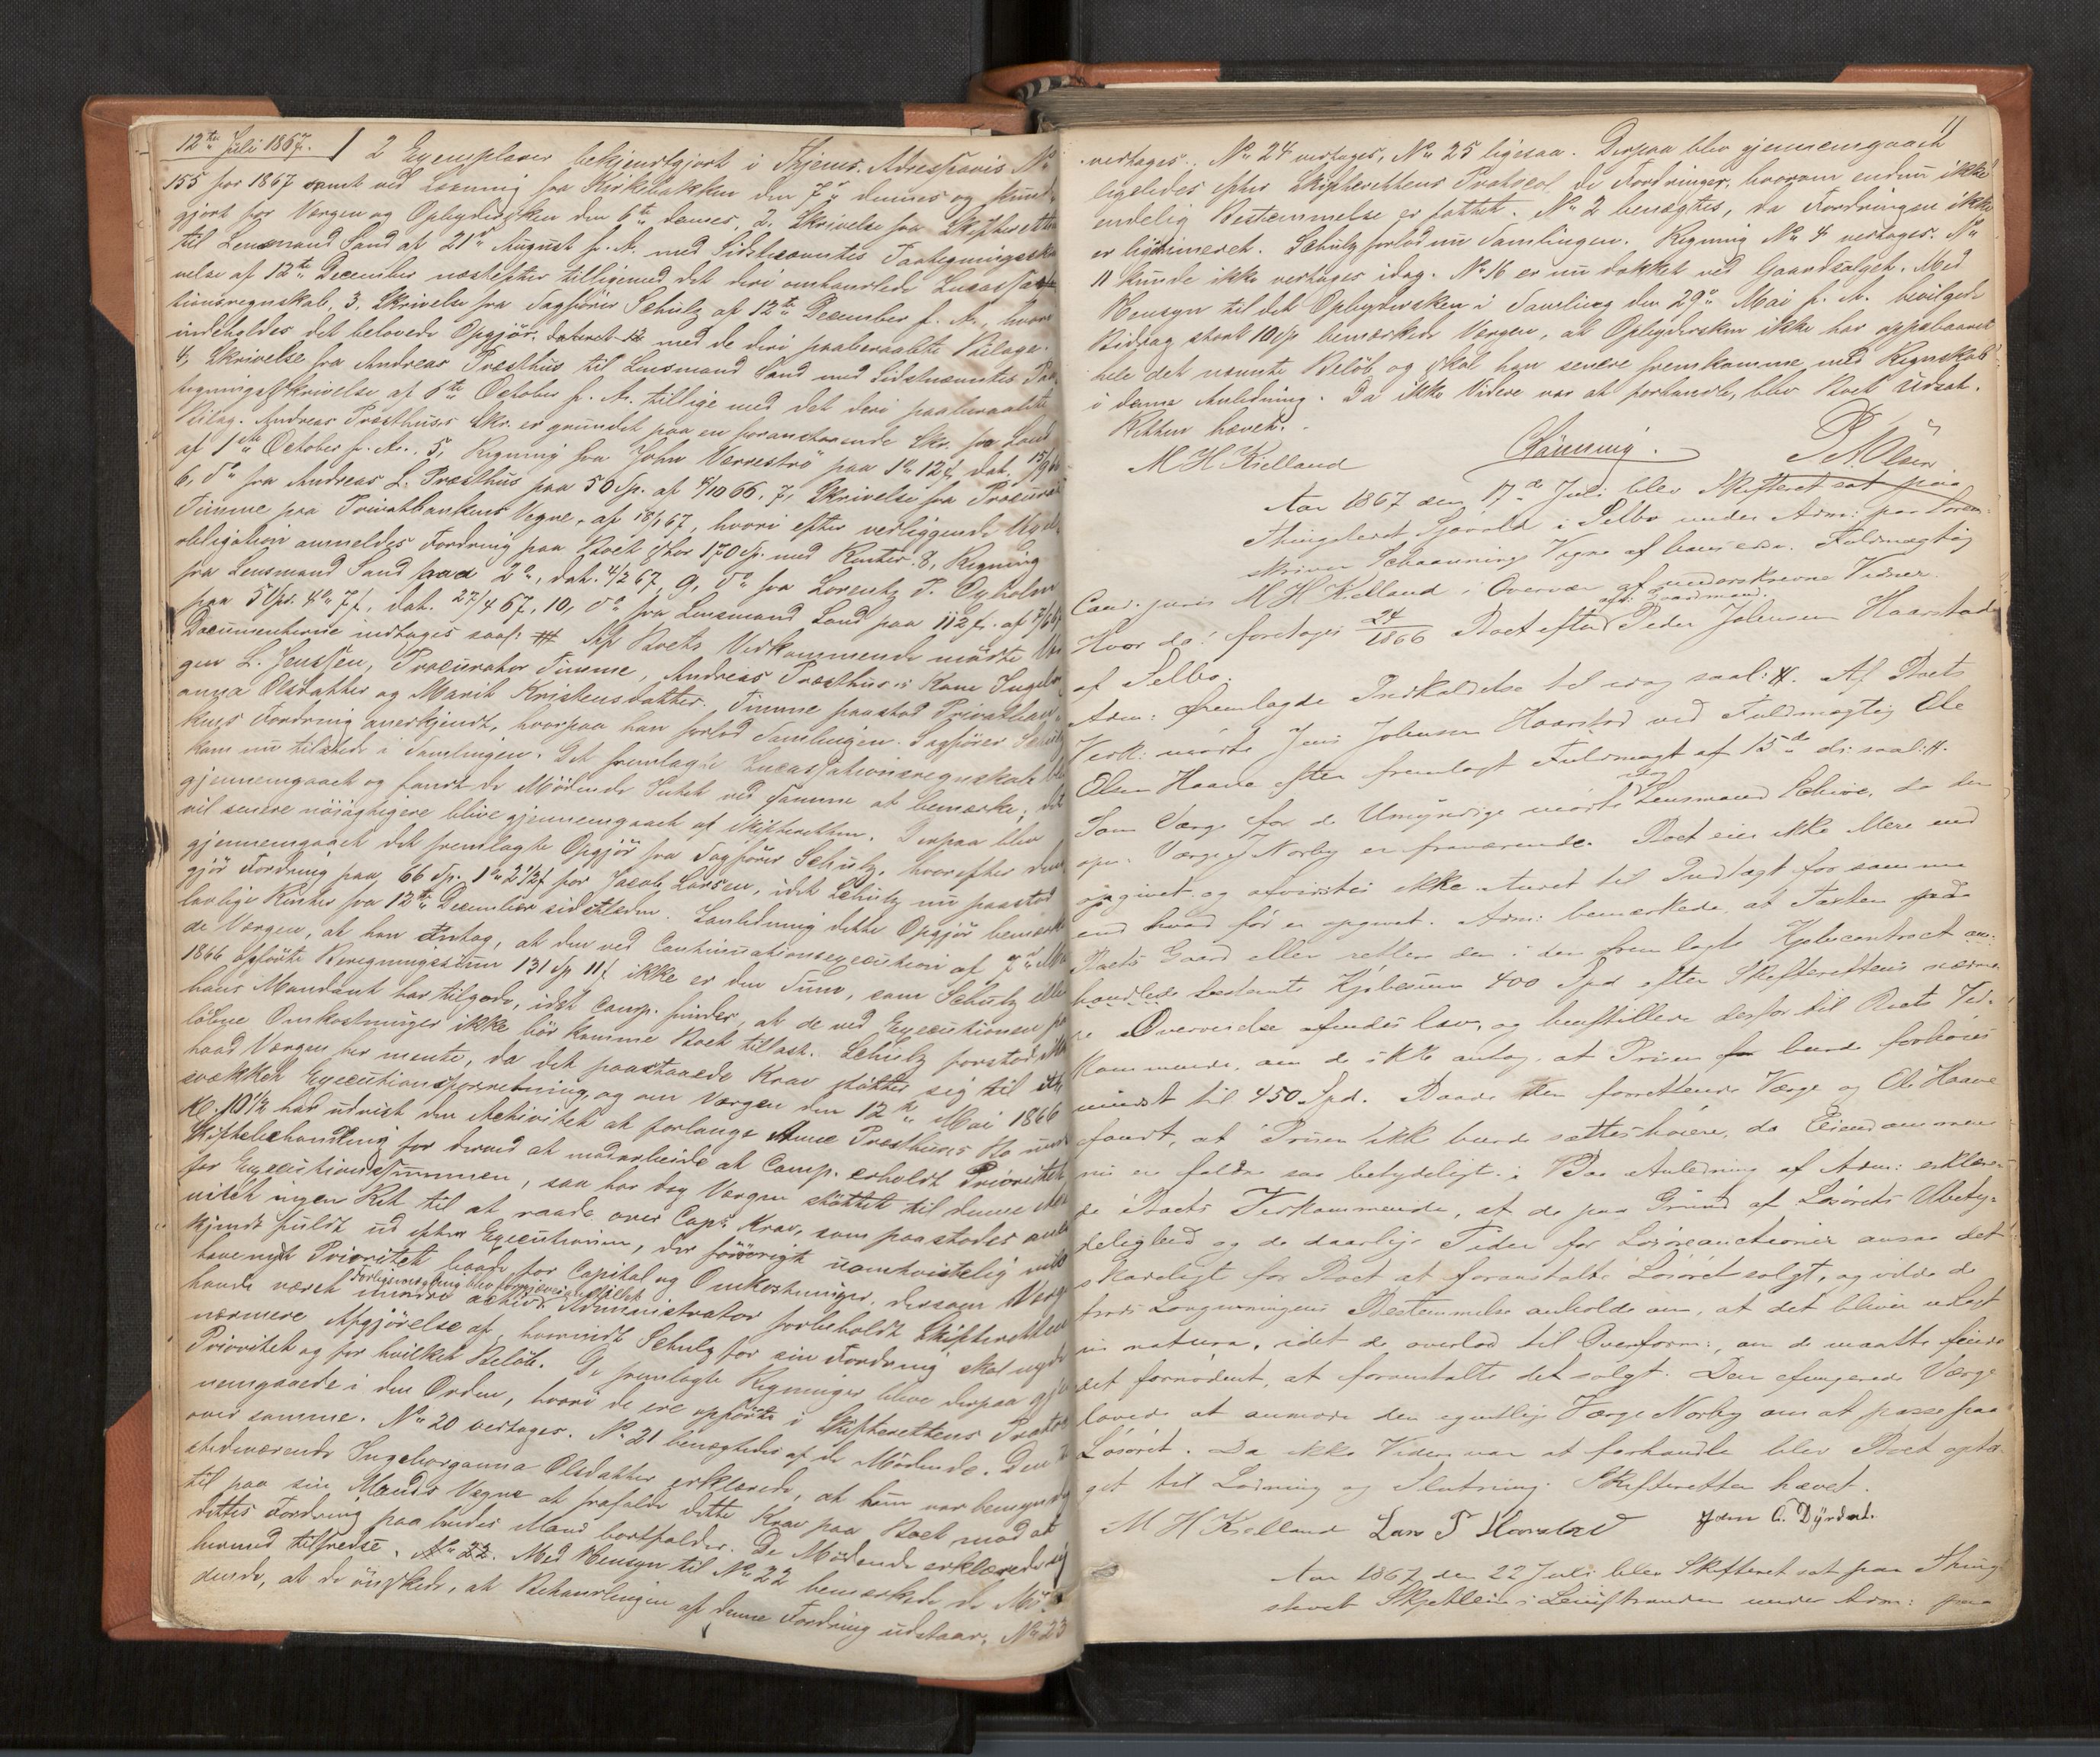 12te Juli 1867. 2 Exemplarer bekjendtgjort i Thjems. Adresseavis No
155 for 1867 samt ved Læsning fra Kirkebakken den 7de dennes og
gjort for Værgen og Opbydersken den 6te dennes, 2. Skrivelse fra Skifteretten
til Lensmand Sand af 21de August f. A. med Sidstnævntes Paategningsskri-
velse af 12te December næstefter tilligemed det deri omhandlede
tionsregnskab, 3, Skrivelse fra Sagfører Schulz af 12te December f. A., hvori
indeholdes det belovede Opgjör, med de deri paaberaabte Bilage.
4, Skrivelse fra Andreas Præsthus til Lensmand Sand med Sidstnævntes Paa-
tegningsskrivelse af 6te October f. A. tillige med det deri paaberaabte
Bilag. Andreas Præsthuses Skr. er grundet paa en foranstaaende Skr. fra Sand
af 1ste October f. A. 5, Regning fra John paa 1o 12s, dat. 15/9 66
6, do fra Andreas L. Præsthus paa 50 Sp. af 4/10 66. 7, Skrivelse fra Procurator
Timme paa Privatbankens Vegne, af 18/1 67, hvori efter vedliggende
obligation anmeldes Fordring paa Boet stor 170 Sp. med Renter. 8, Regning
fra Lensmand Sand paa 2o, dat. 4/2 67, 9, do fra Lorentz P.
paa 5 Spd. 4o 7s, dat. 27/4 67, 10, do fra Lensmand Sand paa 112 s. af
Documenterne indtages saal: # Af Boets Vedkommende mödte Vær-
gen L. Jenssen, Procurator Timme, Andreas Præsthus's Kone Ingebor-
anna Olsdatter og Marit Kristensdatter. Timme paastod Privatban-
kens Fordring anerkjendt, hvorpaa han forlod Samlingen. Sagförer Schulz
kom nu tilstede i Samlingen. Det fremlagte Lucassationsregnskab blev
gjennemgaaet og fandt de Mödende Intet ved samme at bemærke; det
vil senere nöiagtigere blive gjennemgaaet af Skifteretten. Derpaa blev
gjennemgaaet det fremlagte Opgjör fra Sagförer Schulz, hvorefter denne
gjör Fordring paa 66 Sp. 1o 2 1/2 s for Jacob Larsen, idet Schulz nu paastod
lovlige Renter fra 12te December sidstleden. I anledning dette Opgjör bemærke-
de Værgen, at han antog, at den ved Continuationsexecution af 7de Mai
1866 opförte Beregningssum 131 Sp 11s ikke er den Sum, som Schulz eller
hans Mandant har tilgode, idet Comp. finder, at de ved Executionen
löbne Omkostninger ikke bör komme Boet tillast. Schulz forstod ikke
hvad Værgen her mente, da det paastaaede Krav stötter sig til
svækket Executionsforretning, og om Værgen den 12te Mai 1866
Kl. 10 1/2 har udvist den Activitet at forlange Anne Præsthuses Bo under
Skiftebehandling for derved at modarbeide at Comp. erholdt Prioritet
for Executionssummen, saa har dog Værgen stöttet til denne
vitet ingen Ret til at raade over Cap:s Krav, som paastodes aner-
kjendt fuldt ud efter Executionen, der forövrigt uomtvistelig vilde
have nydt Prioritet baade for Capital og Omkostninger, dersom Værgen
havde været mindre activ. Administrator forbeholdt Skifteretten
nærmere Afgjörelse af, hvorvidt Schulz for sin Fordring skal nyde
Prioritet og for hvilket Belöb. De fremlagte Regninger bleve derpaa gjen-
nemgaaede i den Orden, hvori de ere opförte i Skifterettens Protocol
over samme. No 20 vedtages. No 21 benægtedes af de Mödende. Den
stedeværende Ingeborganna Olsdatter erklærede, at hun var bemyndiget
til paa sin Mands Vegne at frafalde dette Krav paa Boet mod at
dettes Fordring paa hendes Mand bortfalder. De Mödende erklærede sig
hermed tilfredse. No 22. Med Hensyn til No 22 bemærkede de Mö-
dende, at de önskede, at Behandlingen af denne Fordring udstaar. No 23
11
vedtages. No 24 vedtages, No 25 ligesaa. Derpaa blev gjennemgaaet
ligeledes efter Skifterettens Protocol de Fordringer, hvorom endnu ikke
endelig Bestemmelse er fattet. No 2 benægtes, da Fordringen ikke
er legitimeret. Schulz forlod nu Samlingen. Regning No 4 vedtages. No
11 kunde ikke vedtages idag. No 16 er nu dækket ved Gaardsalget. Med
Hensyn til det Opbydersken i Samling den 29de Mai f. A. bevilgede
Bidrag stort 10 Sp bemærkede Værgen, at Opbydersken ikke har oppebaaret
hele det nævnte Belöb og skal han senere fremkomme med Regnskab
i denne Anledning. Da ikke Videre var at forhandle, blev Boet udsat.
Retten hævet.
M H Kielland P A Olsen
Aar 1867 den 17de Juli blev Skifteret sat paa
Thingstedet i Selbo under Adm: paa Soren-
skriver Schaannings Vegne af hans edsv. Fuldmægtig
Cand. juris M H Kielland i Overvær af underskrevne Vidner.
Hvor da: foretoges 24/1866 Boet efter afd: Gaardmand Peder Johnsen Haarstad
af Selbo.
Adm: fremlagde Indkaldelse til idag saal: #. Af Boets
Vedk: mödte Jens Johnsen Haarstad ved Fuldmægtig Ole
Olsen Haave efter fremlagt Fuldmagt af 15de ds: saal: #.
Som Værge for de Umyndige mödte idag Lensmand, da den
opn: Værge Norby er fraværende. Boet eier ikke Mere end
opgivet og afvistes ikke Andet til Indtægt for samme
end hvad för er opgivet. Adm: bemærkede, at Taxten paa
Boets Gaard eller rettere den i den fremlagte Kjöbecontract om-
handlede bestemte Kjöbesum 400 Spd efter Skifterettens nærme-
re Overveielse findes lav, og henstillede derfor til Boets Ved-
kommende, om de ikke antog, at Prisen burde forhöies
mindst til 450 Spd. Baade den forrettende Værge og Ole Haave
fandt, at Prisen ikke burde sættes höiere, da Eiendommene
nu er faldne saa betydeligt. Paa Anledning af Adm: erklære-
de Boets Vedkommende, at de paa Grund af Lösörets Ubety-
delighed og de daarlige Tider for Lösöreauctioner ansaa det
skadeligt for Boet at foranstalte Lösöret solgt, og vilde de
Bestemmelse anholde om, at det bliver udlagt
in natura, idet de overlod til Overform:, om de maatte finde
det fornödent, at foranstalte det solgt. Den fungerende Værge
lovede at anmode den egentlige Værge Norby om at passe paa
Lösöret. Da ikke Videre var at forhandle blev Boet opta-
get til Lodning og Slutning. Skifteretten hævet.
M H Kielland Lars T Haarstad John O. Dyrdal.
Aar 1867 den 22 Juli blev Skifteret sat paa Thing-
stedet i Leinstranden under Adm: paa